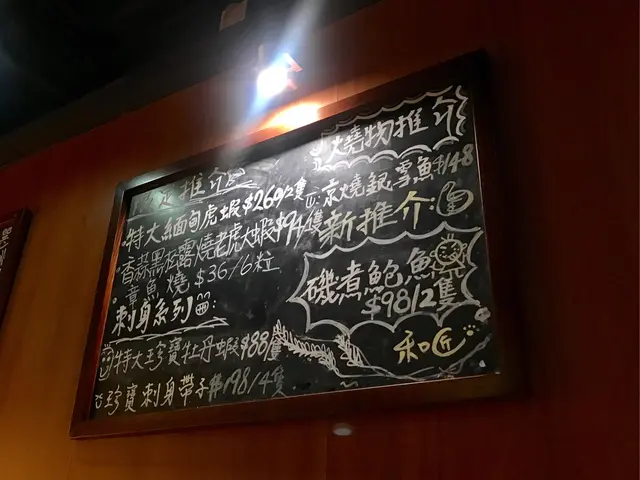 推介
特大緬甸虎蝦$260/2隻
香蒜黑松露燒老虎大蝦$94/隻
章魚燒$36/6粒
刺身系列:
特大珍寶牡丹蝦$88/隻
珍寶刺身帶子$198/4隻
燒物推介
京燒銀雪魚$148
新推介:
磯煮鮑魚
$98/2隻
和匠